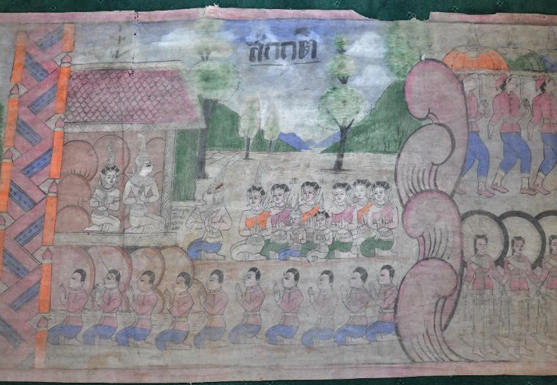 สักกติ